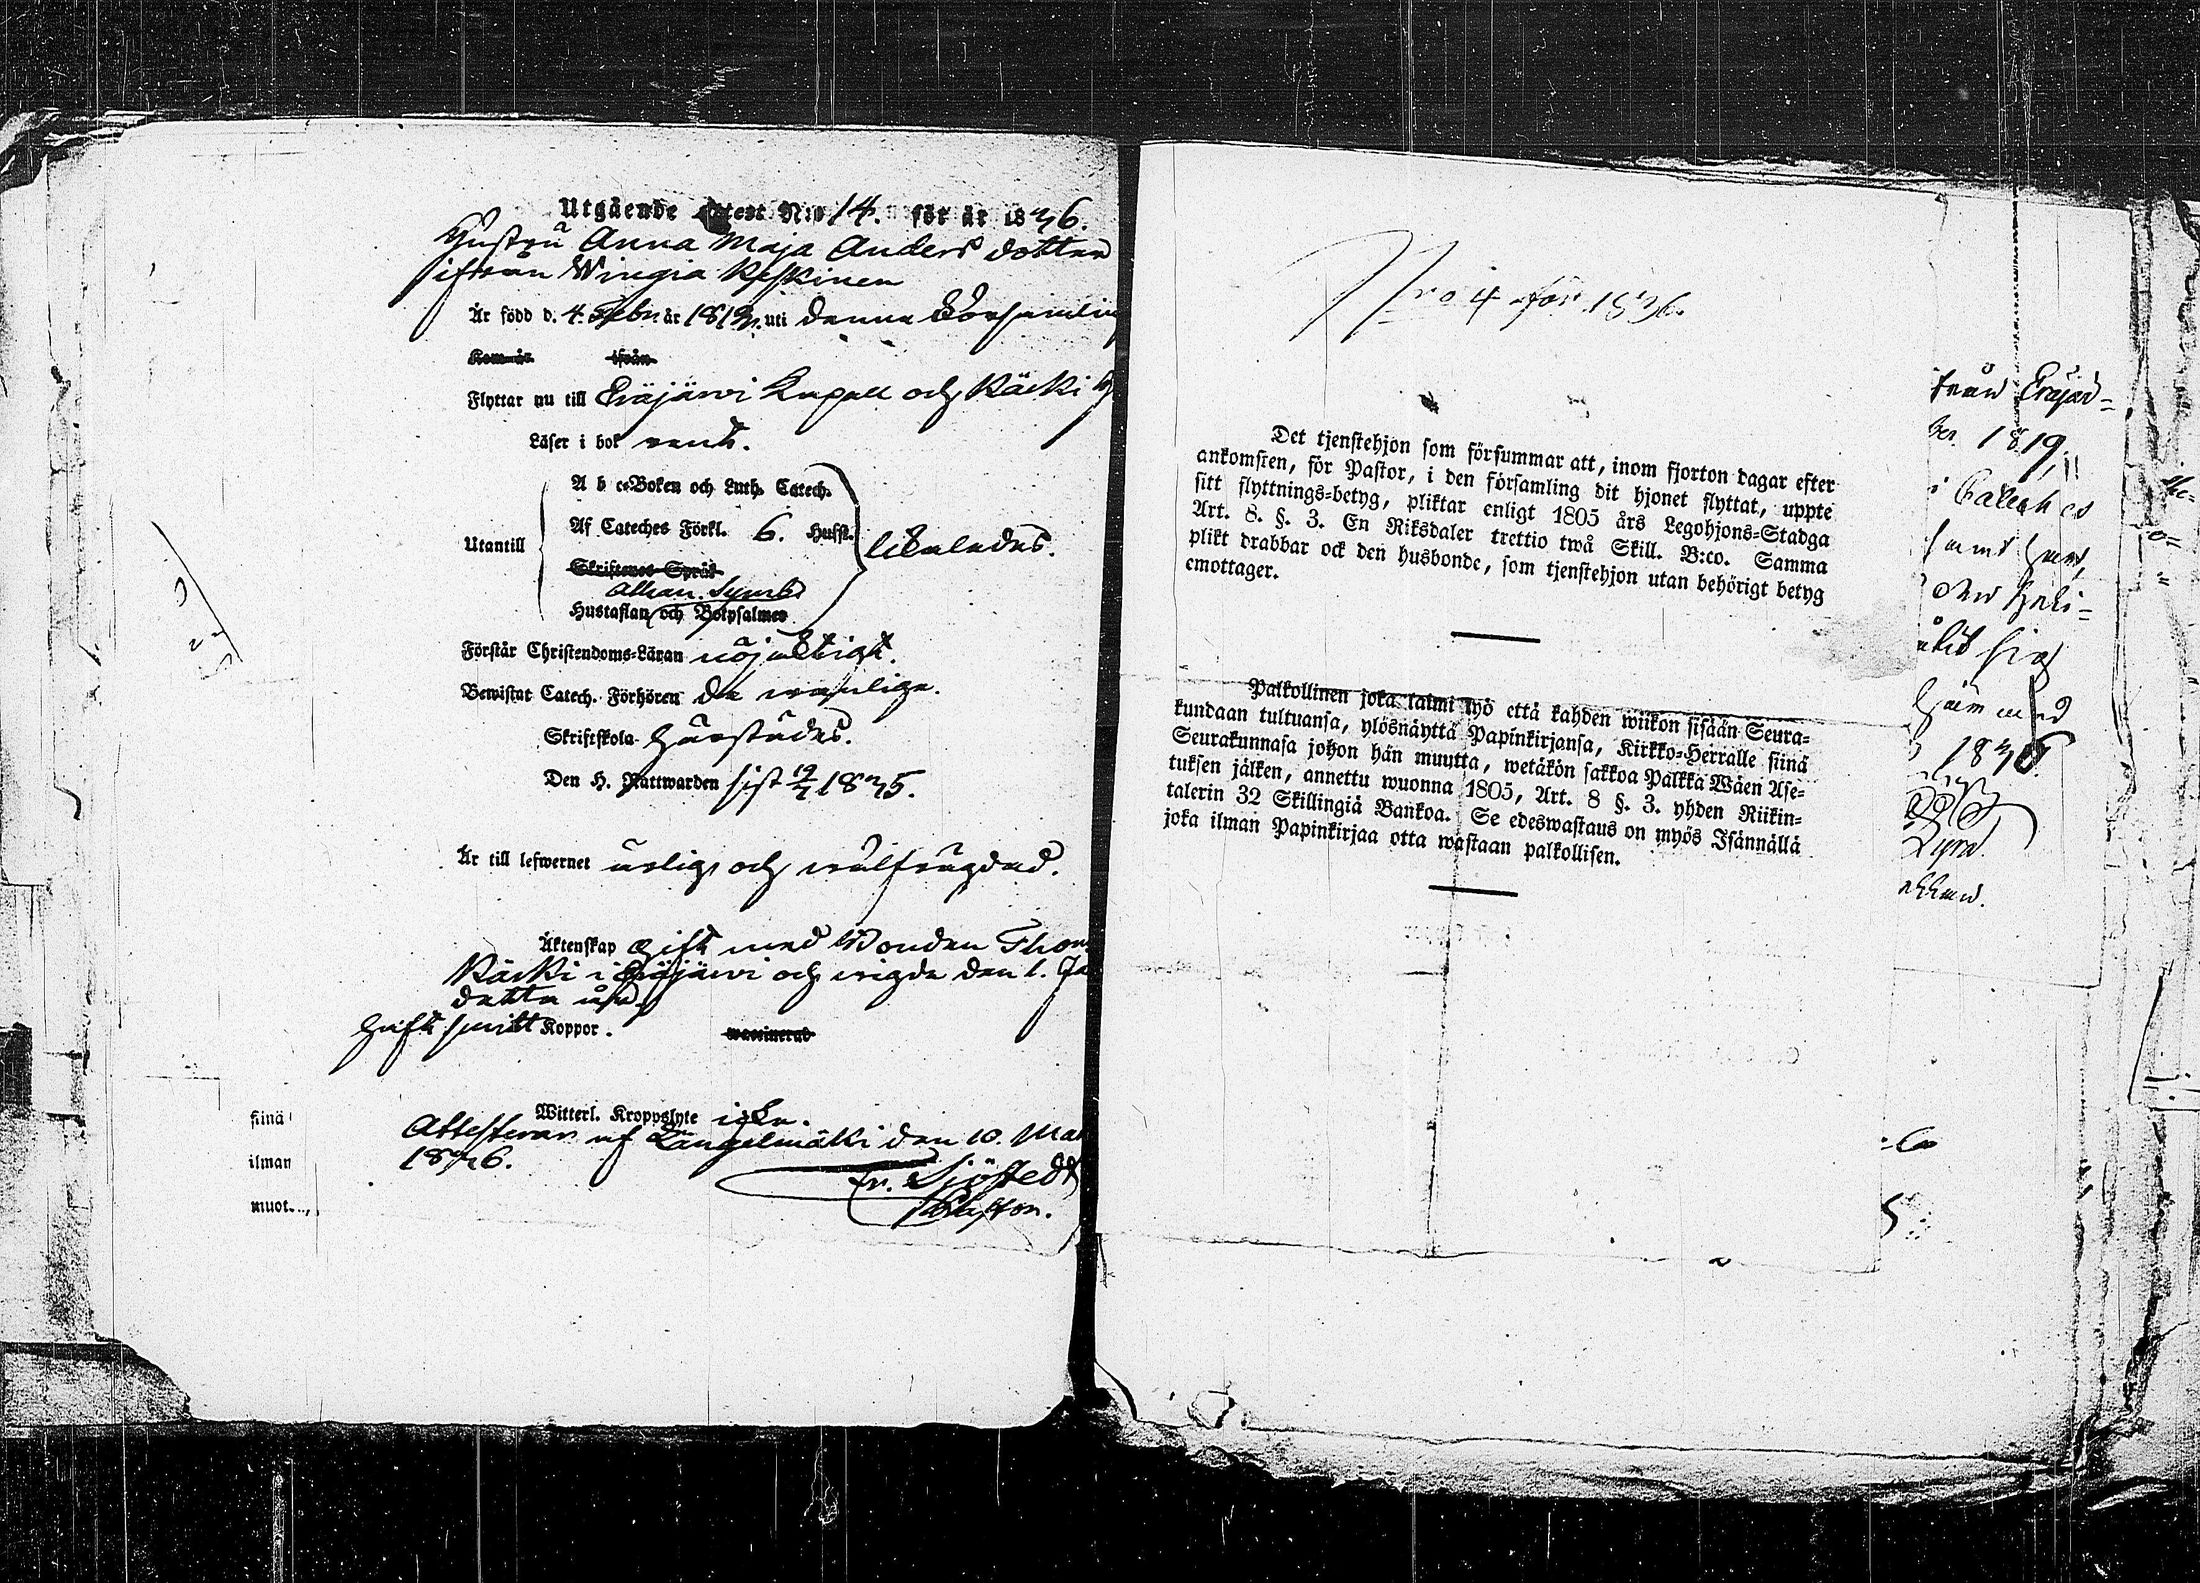 Utgående Attest N:o 14. för år 1836.
Hustru Anna Maja Anders dotter
ifrån Wingia Keskinen
Är född d. 4. Febr. år 1813. uti denna Församling
Kom år ifrån
Flyttar nu till Eräjärvi Kapell och Käcki
Läser i bok rent.
A b c-Boken och Luth. Catech.
Af Cateches Förkl. 6. Hufst.
Utantill likaledes.
Skriftenes Språk
Athan. Symb.
Hustaflan och Botpsalmer
Förstår Christendoms-Läran nöjaktigt.
Bewistat Catech. Förhören de wanliga.
Skriftskola härstädes.
Den H. Nattwarden sist 19/7 1835.
Är till lefwernet ärlig och wälfrägdad.
Äktenskap gift med Bonden Thom
Käcki i Eräjärwi och wigde den 1. Ja
detta år.
Haft smitt Koppor.
waccinerad
Witterl. Kroppslyte icke.
Attesterar uf Längelmäki den 10. Mar
1836.
Fr. Sjöstedt
Past.
sinä
ilman
muot..,
Nro 4 för 1836.
Det tjenstehjon som försummar att, inom fjorton dagar efter
ankomsten, för Pastor, i den församling dit hjonet flyttat, uppte
sitt flyttnings-betyg, pliktar enligt 1805 års Legohjons-Stadga
Art. 8. §. 3. En Riksdaler trettio twå Skill. B:co. Samma
plikt drabbar ock den husbonde, som tjenstehjon utan behörigt betyg
emottager.
Palkollinen joka laimi lyö että kahden wiikon sisään Seura-
kundaan tultuansa, ylösnäyttä Papinkirjansa, Kirkko-Herralle siinä
Seurakunnasa johon hän muutta, wetäkön sakkoa Palkka Wäen Ase-
tuksen jälken, annettu wuonna 1805, Art. 8 §. 3. yhden Riikin-
talerin 32 Skillingiä Bankoa. Se edeswastaus on myös Isännällä
joka ilman Papinkirjaa otta wastaan palkollisen.
från Eräjär-
ber. 1819.
i Cateches
samt
sig
med
1836